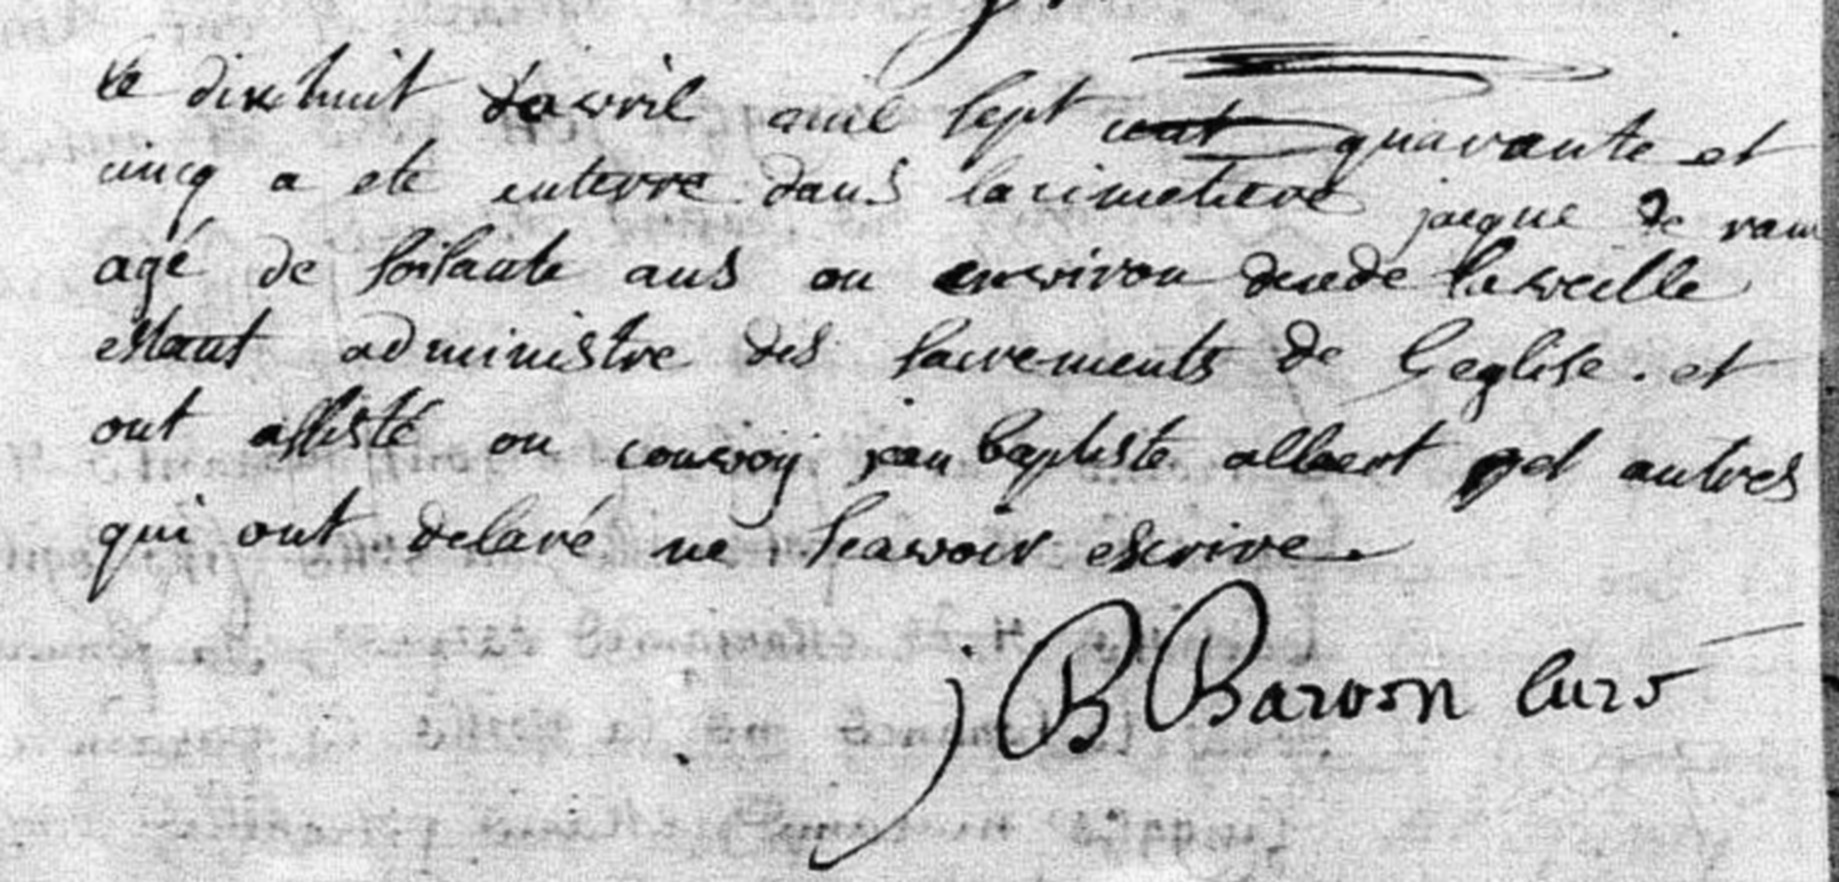 le dixhuit d'avril mil sept cent quarante et
cinq a eté enterré dans lacimetiere jacque de
agé de soisante ans ou environ decedé laveille
estant administre des sacrements de l'eglise. et
ont assisté au convoy jean baptiste albert et autres
qui ont delaré ne seavoir escrire
j B Baron Curé